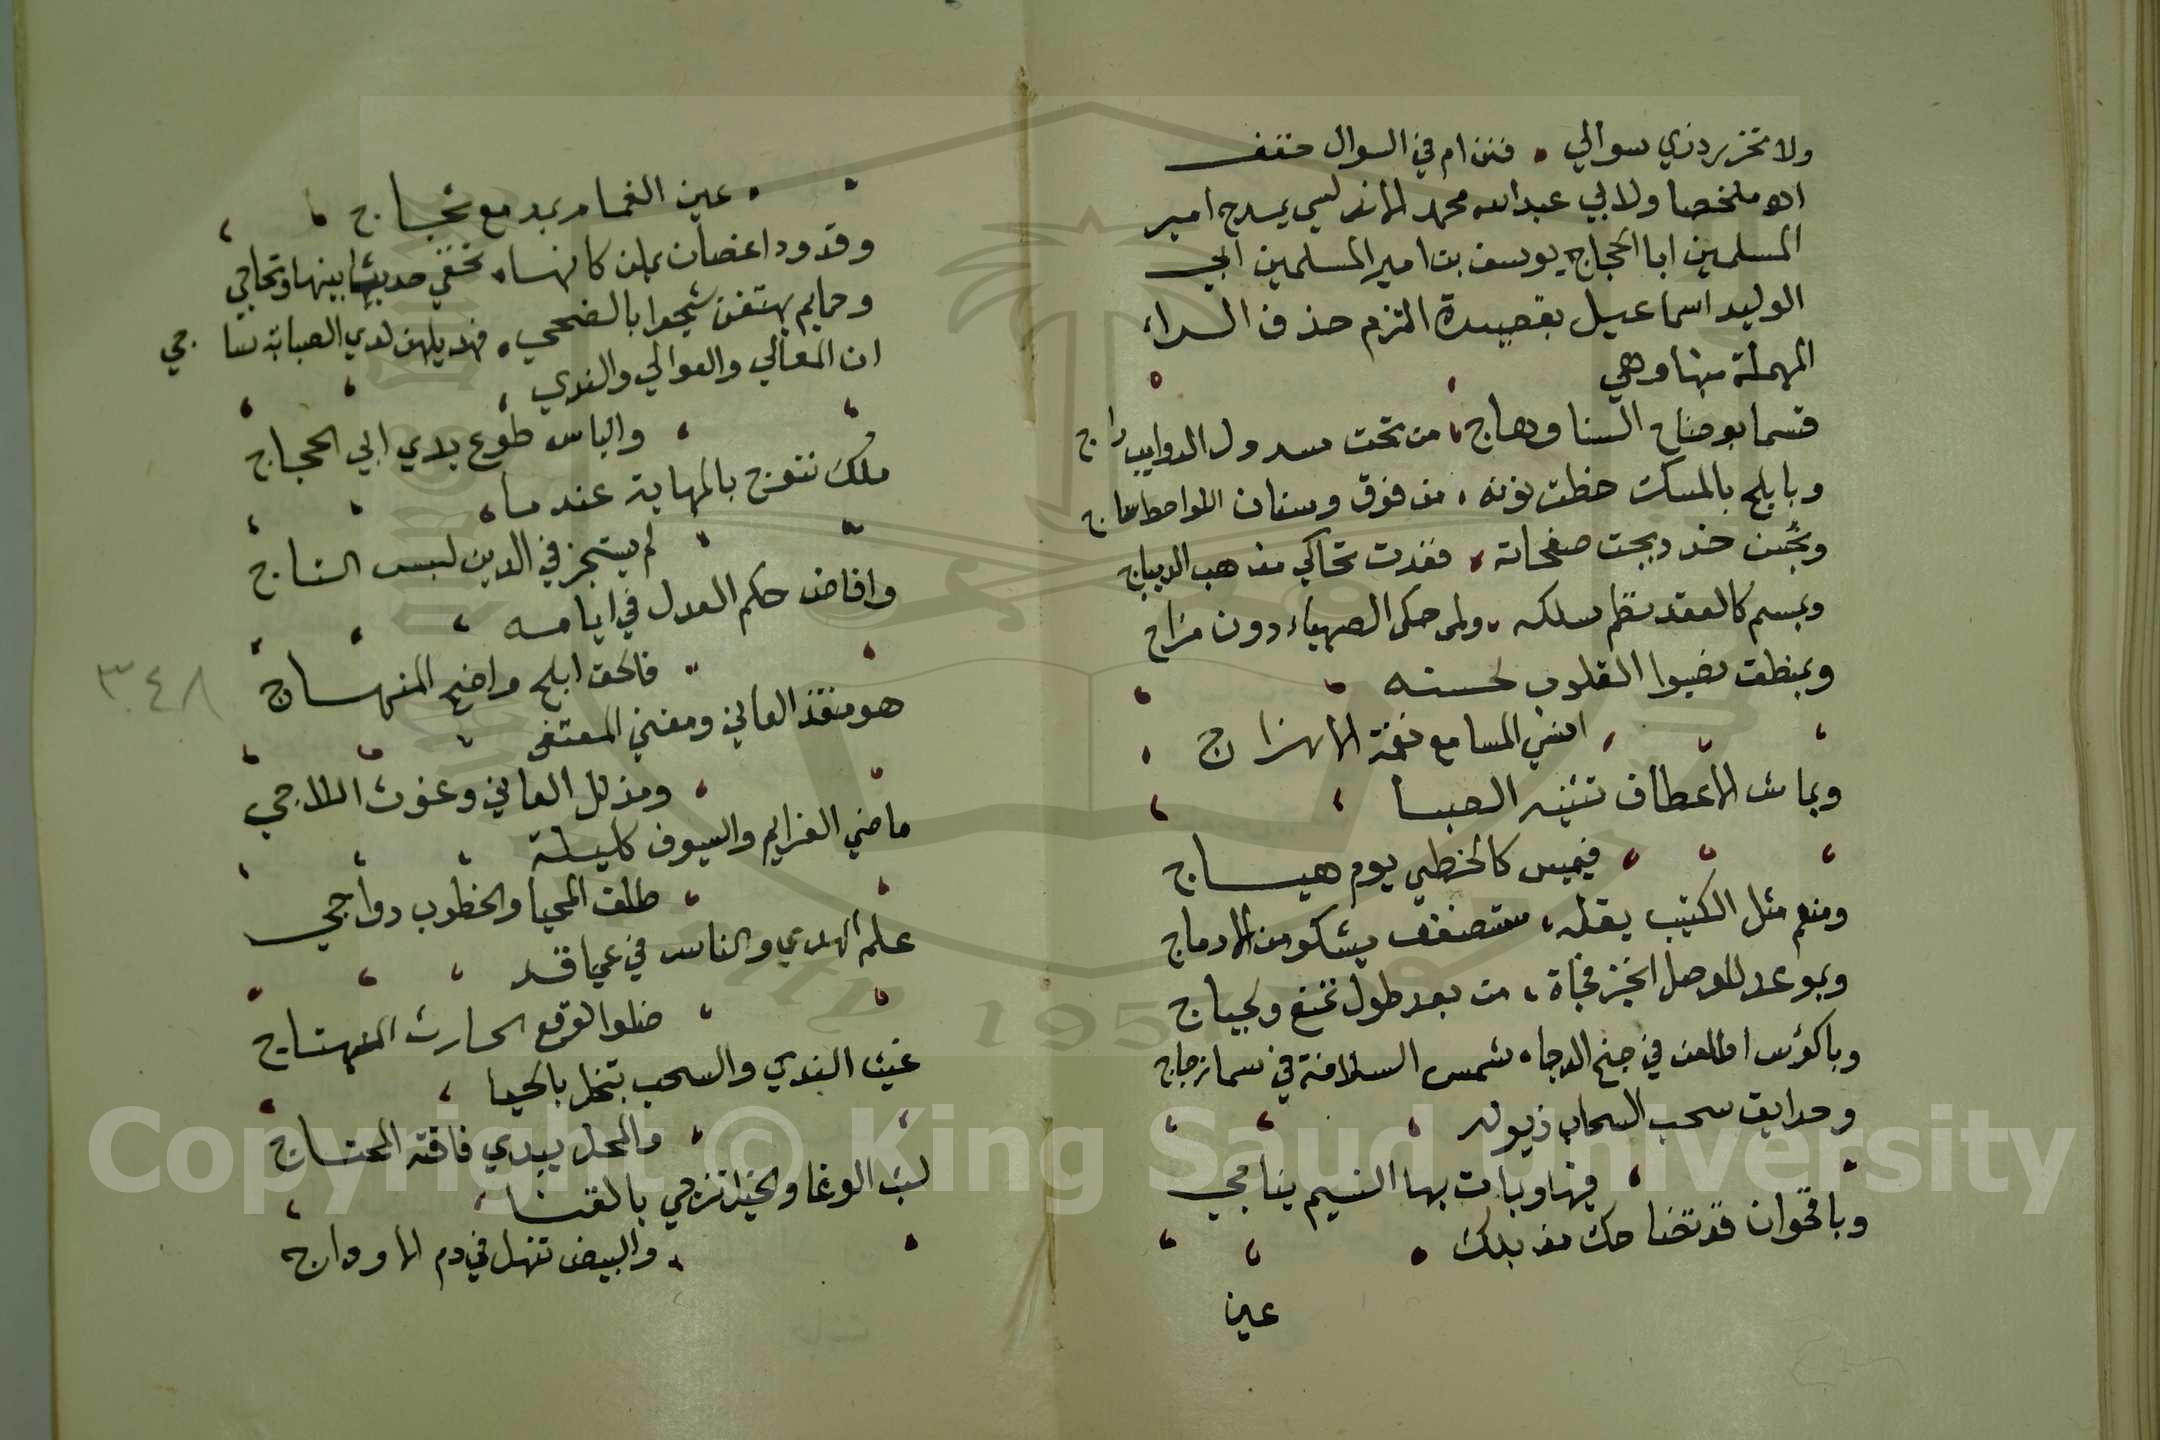 ولا تخز بردي سوالي . فمن ام في السوال
اه ملخصا ولابي عبدالله محمد الاندلسي يمدح امير
المسلمين ابا الحجاج يوسف بن امير المسلمين ابي
الوليد اسماعيل بقصيدة التزم حذف الراء
المهملة منها وهي
قسما بوضاح السنا وهاج ، من تحت مسدول الذوايب داج
وبابلج بالمسك خطت نونه ، من فوق وسنان اللواحظ ساج
وبحسن خد دبجت صفحاته ، فغدت تحاكي مذهب الديباج
وبمبسم كالعقد نظم سلكه ، ولمى حكى الصهباء دون مزاج
وبمنطق تصبوا القلوب لحسنه
انسى المسامع نغمة الاهزاج
وبمائس الاعطاف تثنيه الصبا
فيميس كالخطي يوم هياج
ومنعم مثل الكثيب يقله ، مستضعف يشكو من الادماج
وبموعد للوصل انجز فجاة ، من بعد طول تمنع ولجاج
وباكؤس اطلعن في جنح الدجا ، شمس السلافة في سما زجاج
وحدايق سحب السحاب ذيوله
فيها وباتت بها النسيم يناجي
وباقحوان قد تضاحك مذ بدت
عين
عين الغمام بمدمع ثجاج
وقدود اغصان يملن كانها ، تخفي حديثا بينها وتحاجي
وحمايم يهتفن شجوا بالضحى ، فهديلهن لدي الصبابة شاجي
ان المعالي والعوالي والندي
والباس طوع يدي ابي الحجاج
ملك تتوج بالمهابة عندما
لم يستجز في الدين لبس التاج
وافاض حكم العدل في ايامه
فالحق ابلج واضح المنهاج
هو منقذ العاني ومغني المعتفى
ومذلل العاتي وغوث اللاجي
ماضي العزايم والسيوف كليلة
طلق المحيا والخطوب دواجي
علم الهدي والناس في عميا قد
ضلوا لوقع الحارث المهتاج
غيث الندي والسحب تبخل بالحيا
والمحل يبدي فاقة المحتاج
ليث الوغا والخيل تزجي بالقنا
والبيض تنهل في دم الاوداج
٣٤٨
Copyright © King Saud University
1957